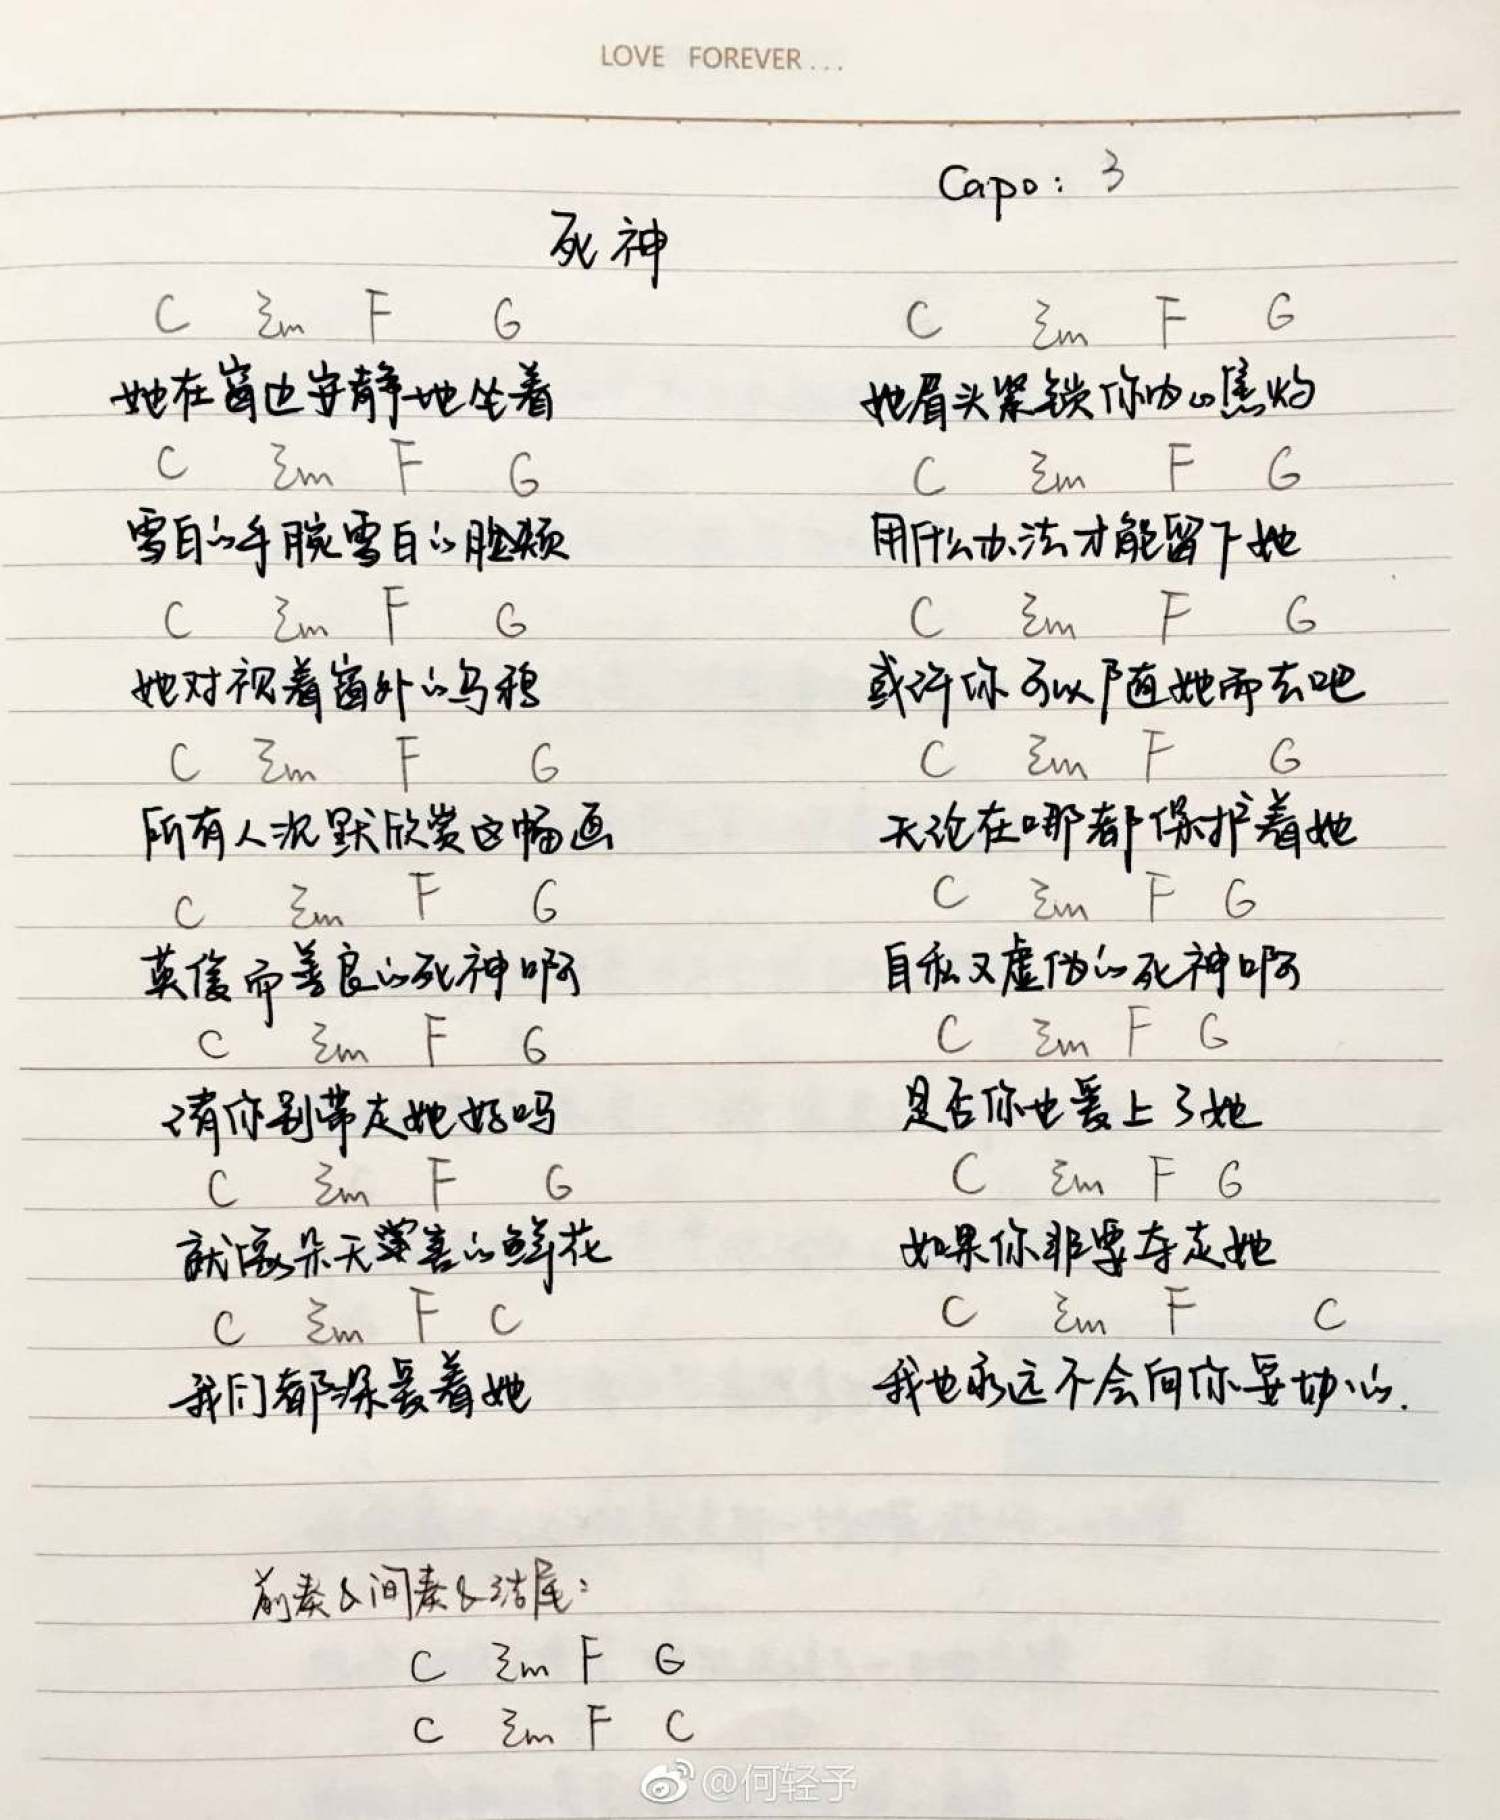 LOVE FOREVER...
Capo: 3
死神
C Em F G
她在窗边安静地坐着
C Em F G
雪白的手腕雪白的脸颊
C Em F G
她对视着窗外的乌鸦
C Em F G
所有人沉默欣赏这幅画
C Em F G
英俊而善良的死神啊
C Em F G
请你别带走她好吗
C Em F G
就像朵无害的鲜花
C Em F C
我们都深爱着她
C Em F G
她眉头紧锁你内心焦灼
C Em F G
用什么办法才能留下她
C Em F G
或许你可以随她而去吧
C Em F G
无论在哪都保护着她
C Em F G
自私又虚伪的死神啊
C Em F G
是否你也爱上了她
C Em F G
如果你非要夺走她
C Em F C
我也永远不会向你妥协的.
前奏&间奏&结尾:
C Em F G
C Em F C
@何轻予